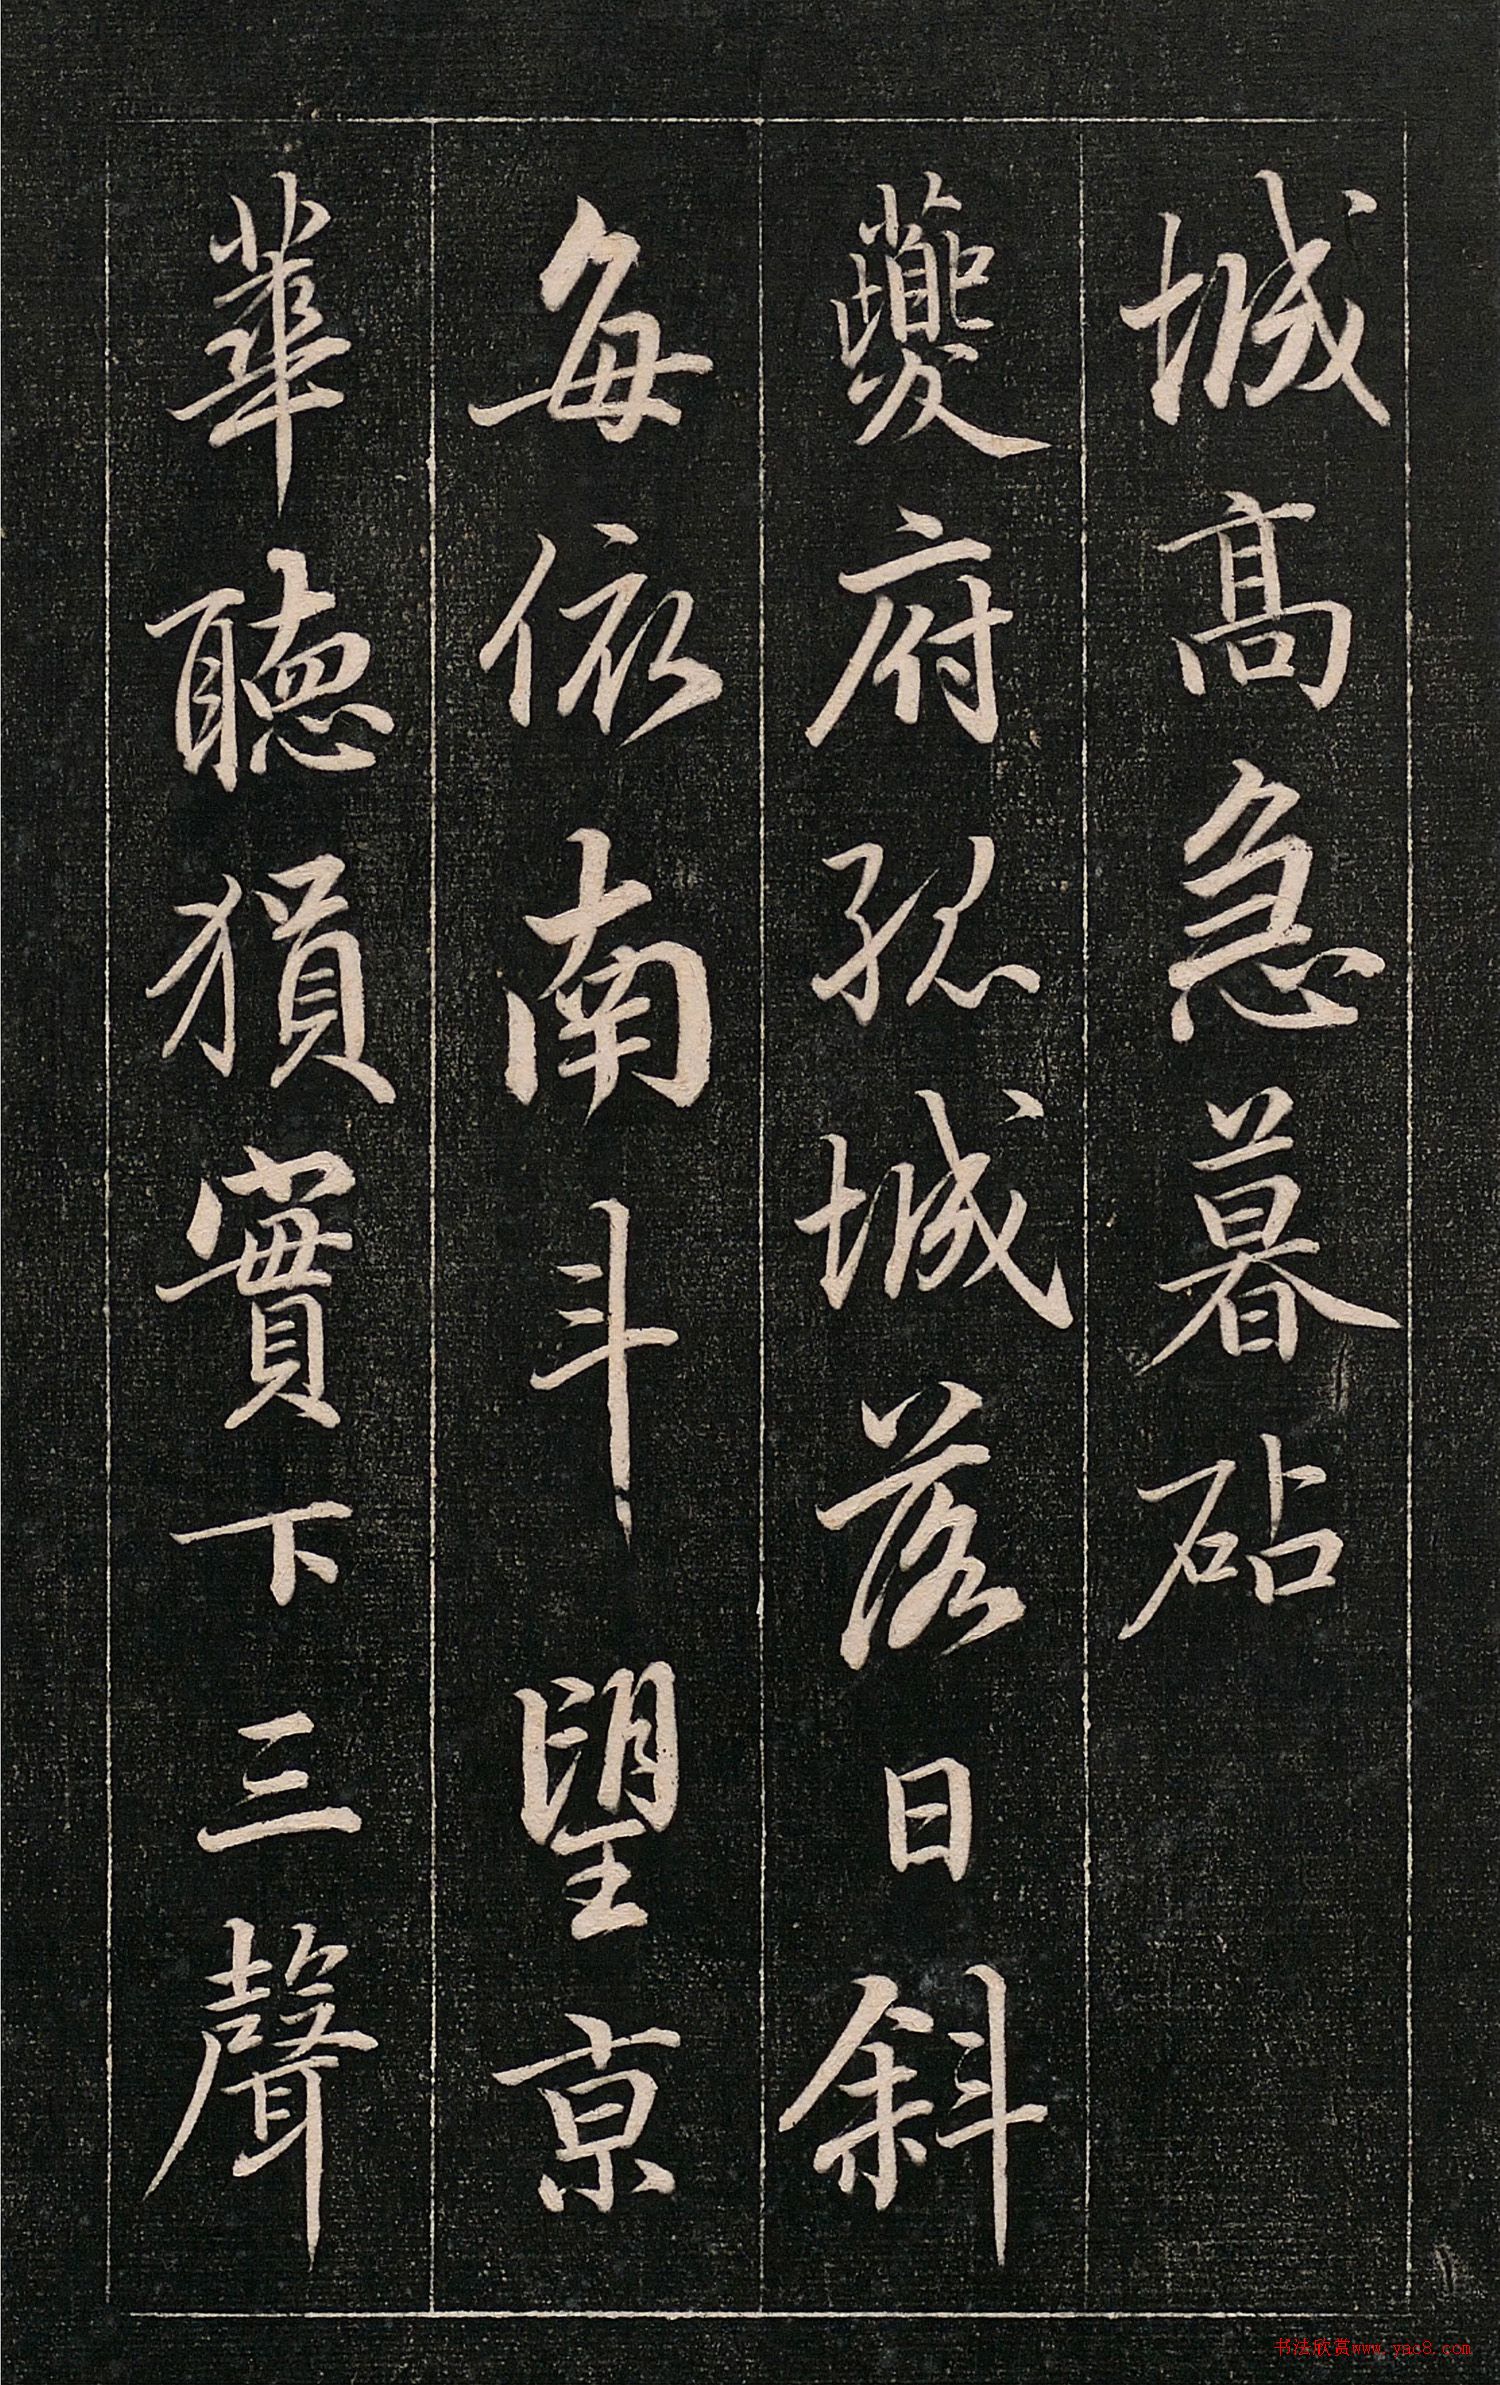 城高急暮砧
夔府孤城落日斜
每依南斗望京
華聽猨實下三聲
书法欣赏www.yac8.com